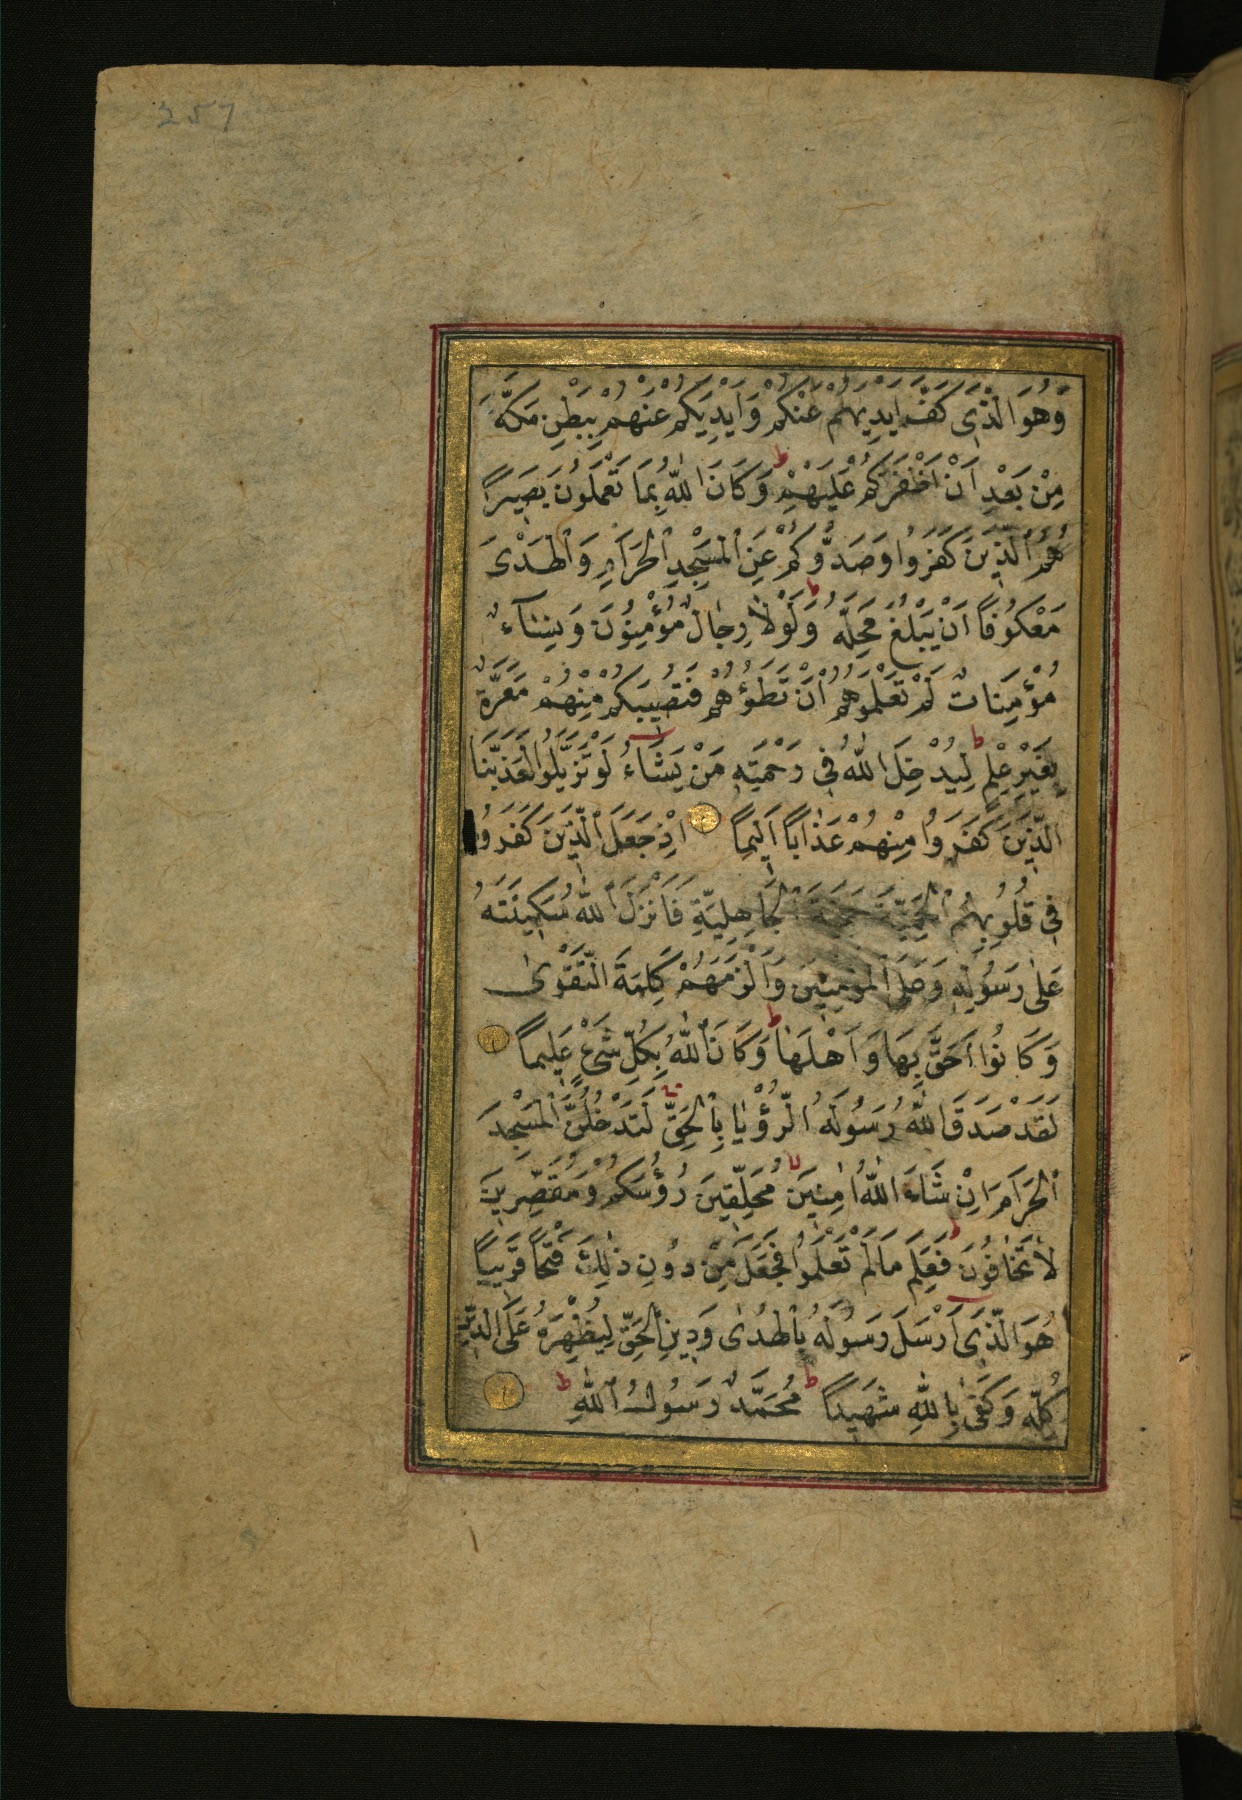 257
وَهُوَ الَّذِى كَفَّ اَيْدِيَهُمْ عَنْكُمْ وَاَيْدِيَكُمْ عَنْهُمْ بِبَطْنِ مَكَّةَ
مِنْ بَعْدِ اَنْ اَظْفَرَكُمْ عَلَيْهِمْ ط وَكَانَ اللّٰهُ بِمَا تَعْمَلُونَ بَصِيرًا
هُمُ الَّذِينَ كَفَرُوا وَصَدُّوكُمْ عَنِ الْمَسْجِدِ الْحَرَامِ وَالْهَدْىَ
مَعْكُوفًا اَنْ يَبْلُغَ مَحِلَّهُ ط وَلَوْلَا رِجَالٌ مُؤْمِنُونَ وَنِسَآءٌ
مُؤْمِنَاتٌ لَمْ تَعْلَمُوهُمْ اَنْ تَطَؤُهُمْ فَتُصِيبَكُمْ مِنْهُمْ مَعَرَّةٌ
بِغَيْرِ عِلْمٍ ط لِيُدْخِلَ اللّٰهُ فِى رَحْمَتِهِ مَنْ يَشَاءُ لَوْ تَزَيَّلُوا لَعَذَّبْنَا
الَّذِينَ كَفَرُوا مِنْهُمْ عَذَابًا اَلِيمًا اِذْ جَعَلَ الَّذِينَ كَفَرُوا
فِى قُلُوبِهِمُ الْحَمِيَّةَ حَمِيَّةَ الْجَاهِلِيَّةِ فَاَنْزَلَ اللّٰهُ سَكِينَتَهُ
عَلٰى رَسُولِهِ وَعَلَى الْمُؤْمِنِينَ وَاَلْزَمَهُمْ كَلِمَةَ التَّقْوٰى
وَكَانُوا اَحَقَّ بِهَا وَاَهْلَهَا ط وَكَانَ اللّٰهُ بِكُلِّ شَىْءٍ عَلِيمًا
لَقَدْ صَدَقَ اللّٰهُ رَسُولَهُ الرُّؤْيَا بِالْحَقِّ لَتَدْخُلُنَّ الْمَسْجِدَ
الْحَرَامَ اِنْ شَاءَ اللّٰهُ اٰمِنِينَ لا مُحَلِّقِينَ رُؤُسَكُمْ وَمُقَصِّرِينَ
لَا تَخَافُونَ ط فَعَلِمَ مَا لَمْ تَعْلَمُوا فَجَعَلَ مِنْ دُونِ ذٰلِكَ فَتْحًا قَرِيبًا
هُوَ الَّذِى اَرْسَلَ رَسُولَهُ بِالْهُدٰى وَدِينِ الْحَقِّ لِيُظْهِرَهُ عَلَى الدِّينِ
كُلِّهِ وَكَفٰى بِاللّٰهِ شَهِيدًا ط مُحَمَّدٌ رَسُولُ اللّٰهِ ط